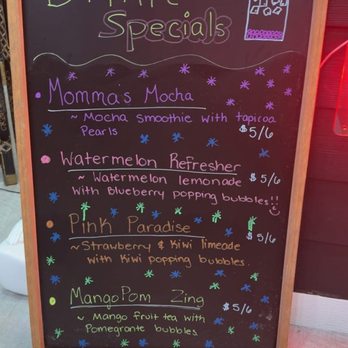 Specials
Momma's Mocha
~ Mocha smoothie with tapicoa
Pearls
$5/6
Watermelon Refresher
~ Watermelon lemonade
$5/6
with Blueberry popping bubbles!!
Pink Paradise
$5/6
~ Strawberry & Kiwi limeade
with Kiwi popping bubbles.
Mango Pom Zing
$5/6
~ Mango fruit tea with
Pomegrante bubbles